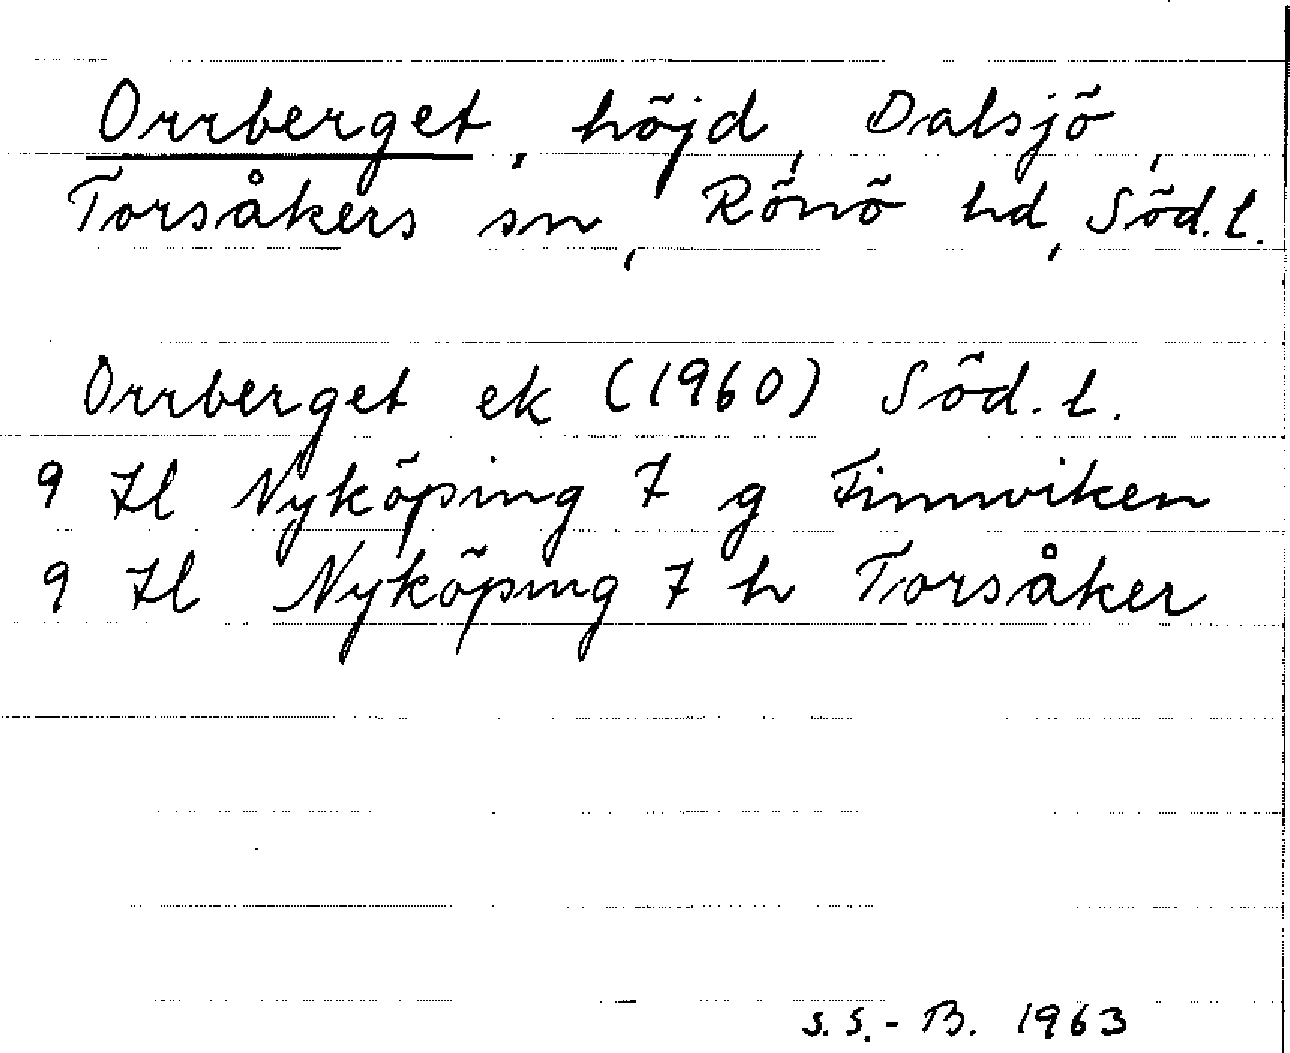 Orrberget, höjd, Dalsjö,
Torsåkers sn, Rönö hd, Söd.l.
Orrberget ek (1960) Söd.l.
9 Hl Nyköping 7 g Finnviken
9 Hl Nyköping 7 h Torsåker
S.S.-B. 1963